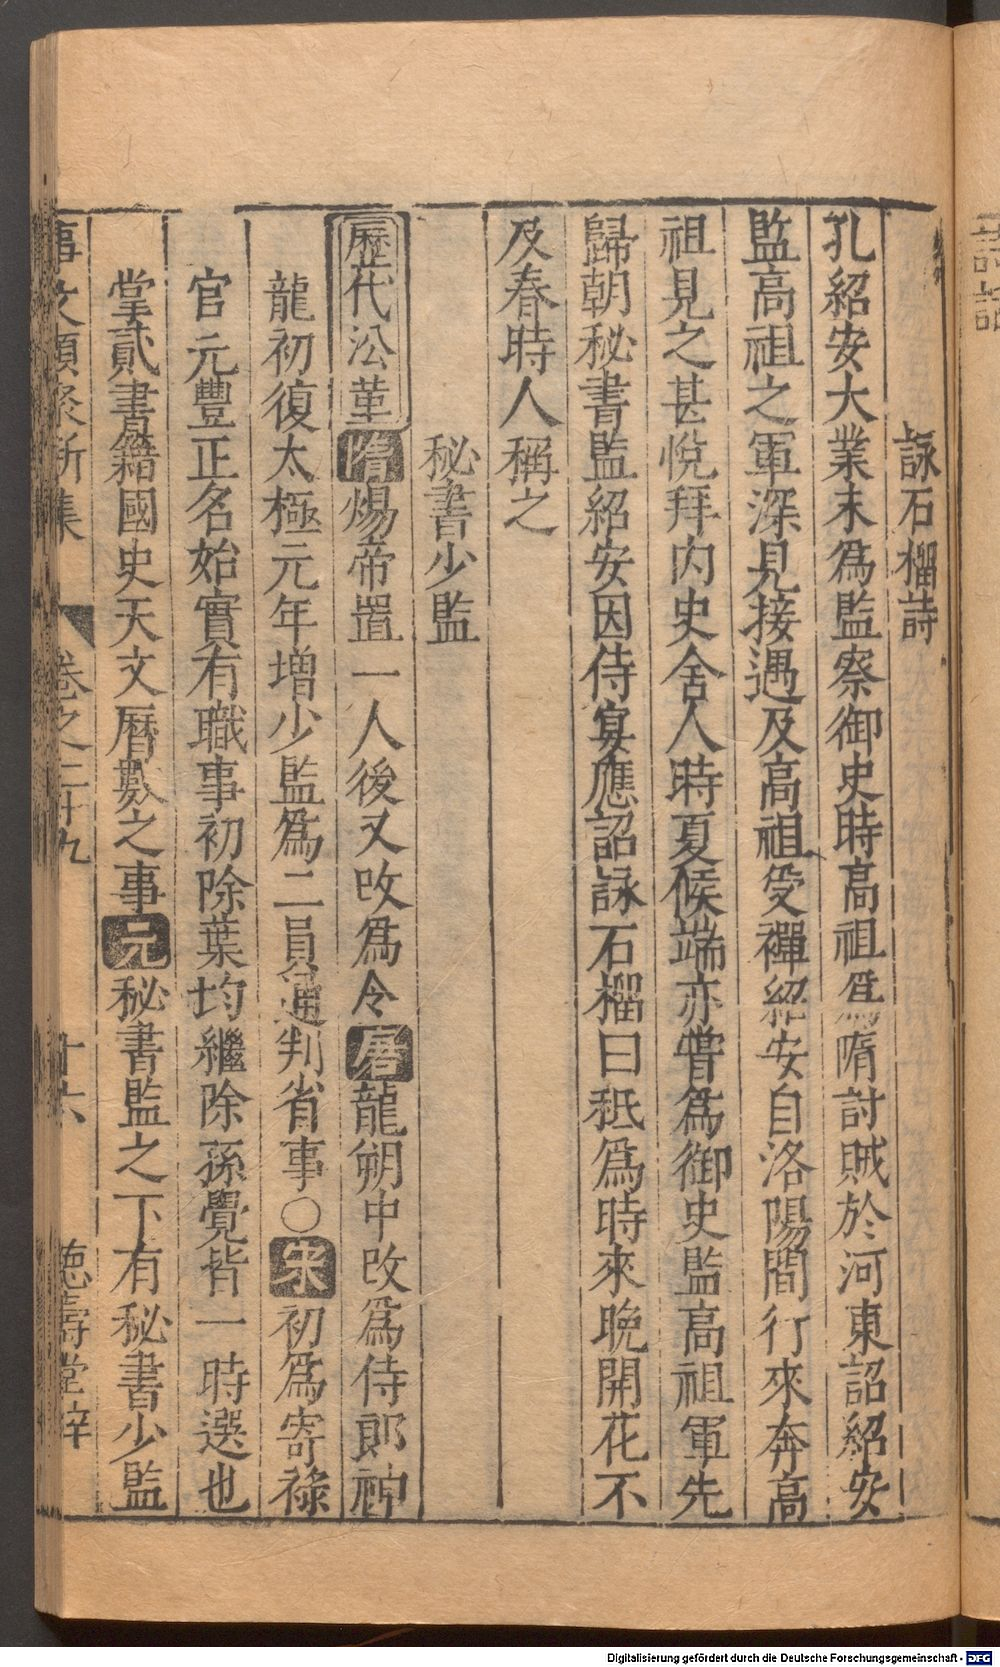 詠石橊詩
孔紹安大業末為監察御史時高祖為隋討賊於河東詔紹安
監高祖之軍深見接遇及高祖受禪紹安自洛陽間行來奔高
祖見之甚悅拜內史舍人時夏候端亦嘗為御史監高祖軍先
歸朝秘書監紹安因侍宴應詔詠石橊曰秪為時來晚開花不
及春時人稱之
秘書少監
歷代沿革隋煬帝置一人後又改為令唐龍朔中改為侍郎神
龍初復太極元年增少監為二員通判省事○宋初為寄祿
官元豐正名始實有職事初除葉均繼除孫覺皆一時選也
掌貳書籍國史天文曆數之事元秘書監之下有秘書少監
事文類聚新集 卷之二十九 十六 德壽堂梓
Digitalisierung gefördert durch die Deutsche Forschungsgemeinschaft - DFG